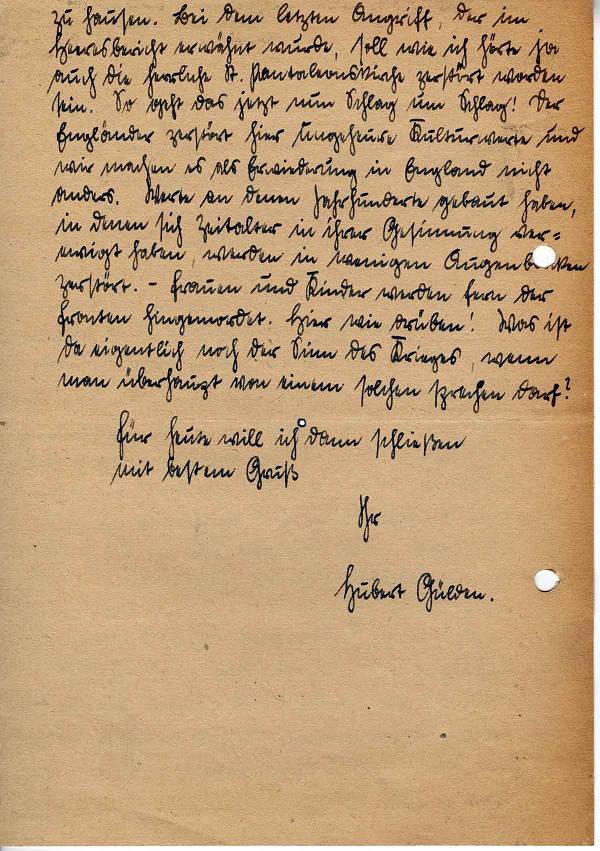 zu hausen. Bei dem letzten Angriff, der im
Heeresbericht erwähnt wurde, soll wie ich hörte ja
auch die herrliche St. Pantaleonskirche zerstört worden
sein. So geht das jetzt nun Schlag um Schlag! Der
Engländer zerstört hier ungeheure Kulturwerte und
wir machen es als Erwiederung in England nicht
anders. Werte an denen Jahrhunderte gebaut haben,
in denen sich Zeitalter in ihrer Gesinnung ver=
ewigt haben, werden in wenigen Augenblicken
zerstört. – Frauen und Kinder werden fern der
Fronten hingemordet. Hier wie drüben! Was ist
da eigentlich noch der Sinn des Krieges, wenn
man überhaupt von einem solchen sprechen darf?
Für heute will ich dann schließen
mit bestem Gruß
Ihr
Hubert Gülden.